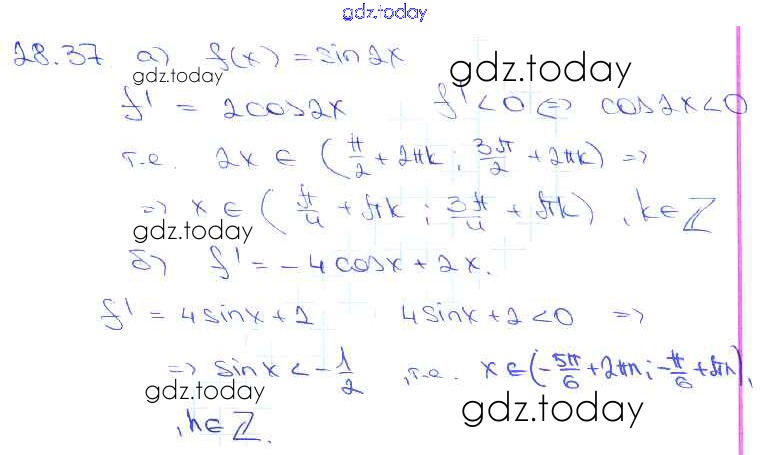 gdz.today
28.37 а) f(x) = sin2x
gdz.today gdz.today
f' = 2cos2x f' < 0 ⇔ cos2x < 0
т.е. 2x ∈ (π/2 + 2πk ; 3π/2 + 2πk) ⇒
⇒ x ∈ (π/4 + πk ; 3π/4 + πk) , k ∈ ℤ
gdz.today
б) f' = -4cosx + 2x.
f' = 4sinx + 2 4sinx + 2 < 0 ⇒
⇒ sinx < -1/2 , т.е. x ∈ (-5π/6 + 2πn ; -π/6 + 2πn),
gdz.today gdz.today
, n ∈ ℤ.